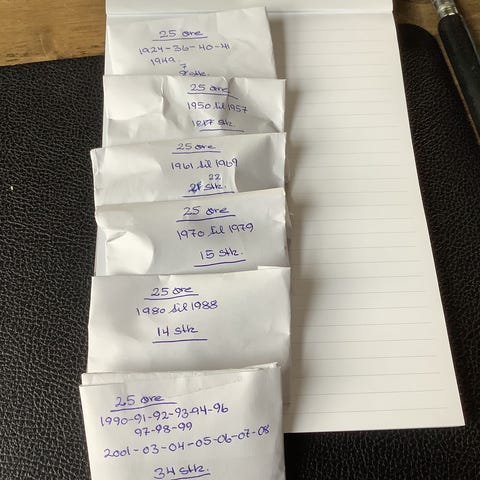 25 øre
1924-36-40-41
1949
7
stk.
25 øre
1950 til 1957
stk.
25 øre
1961 til 1969
22
stk.
25 øre
1970 til 1979
15 stk.
25 øre
1980 til 1988
14 stk
25 øre
1990-91-92-93-94-96
97-98-99
2001-03-04-05-06-07-08
34 stk.